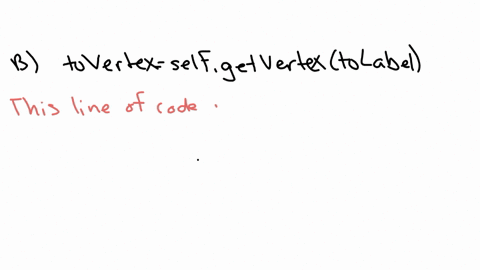 B) toVertex=self.getVertex(toLabel)
This line of code .